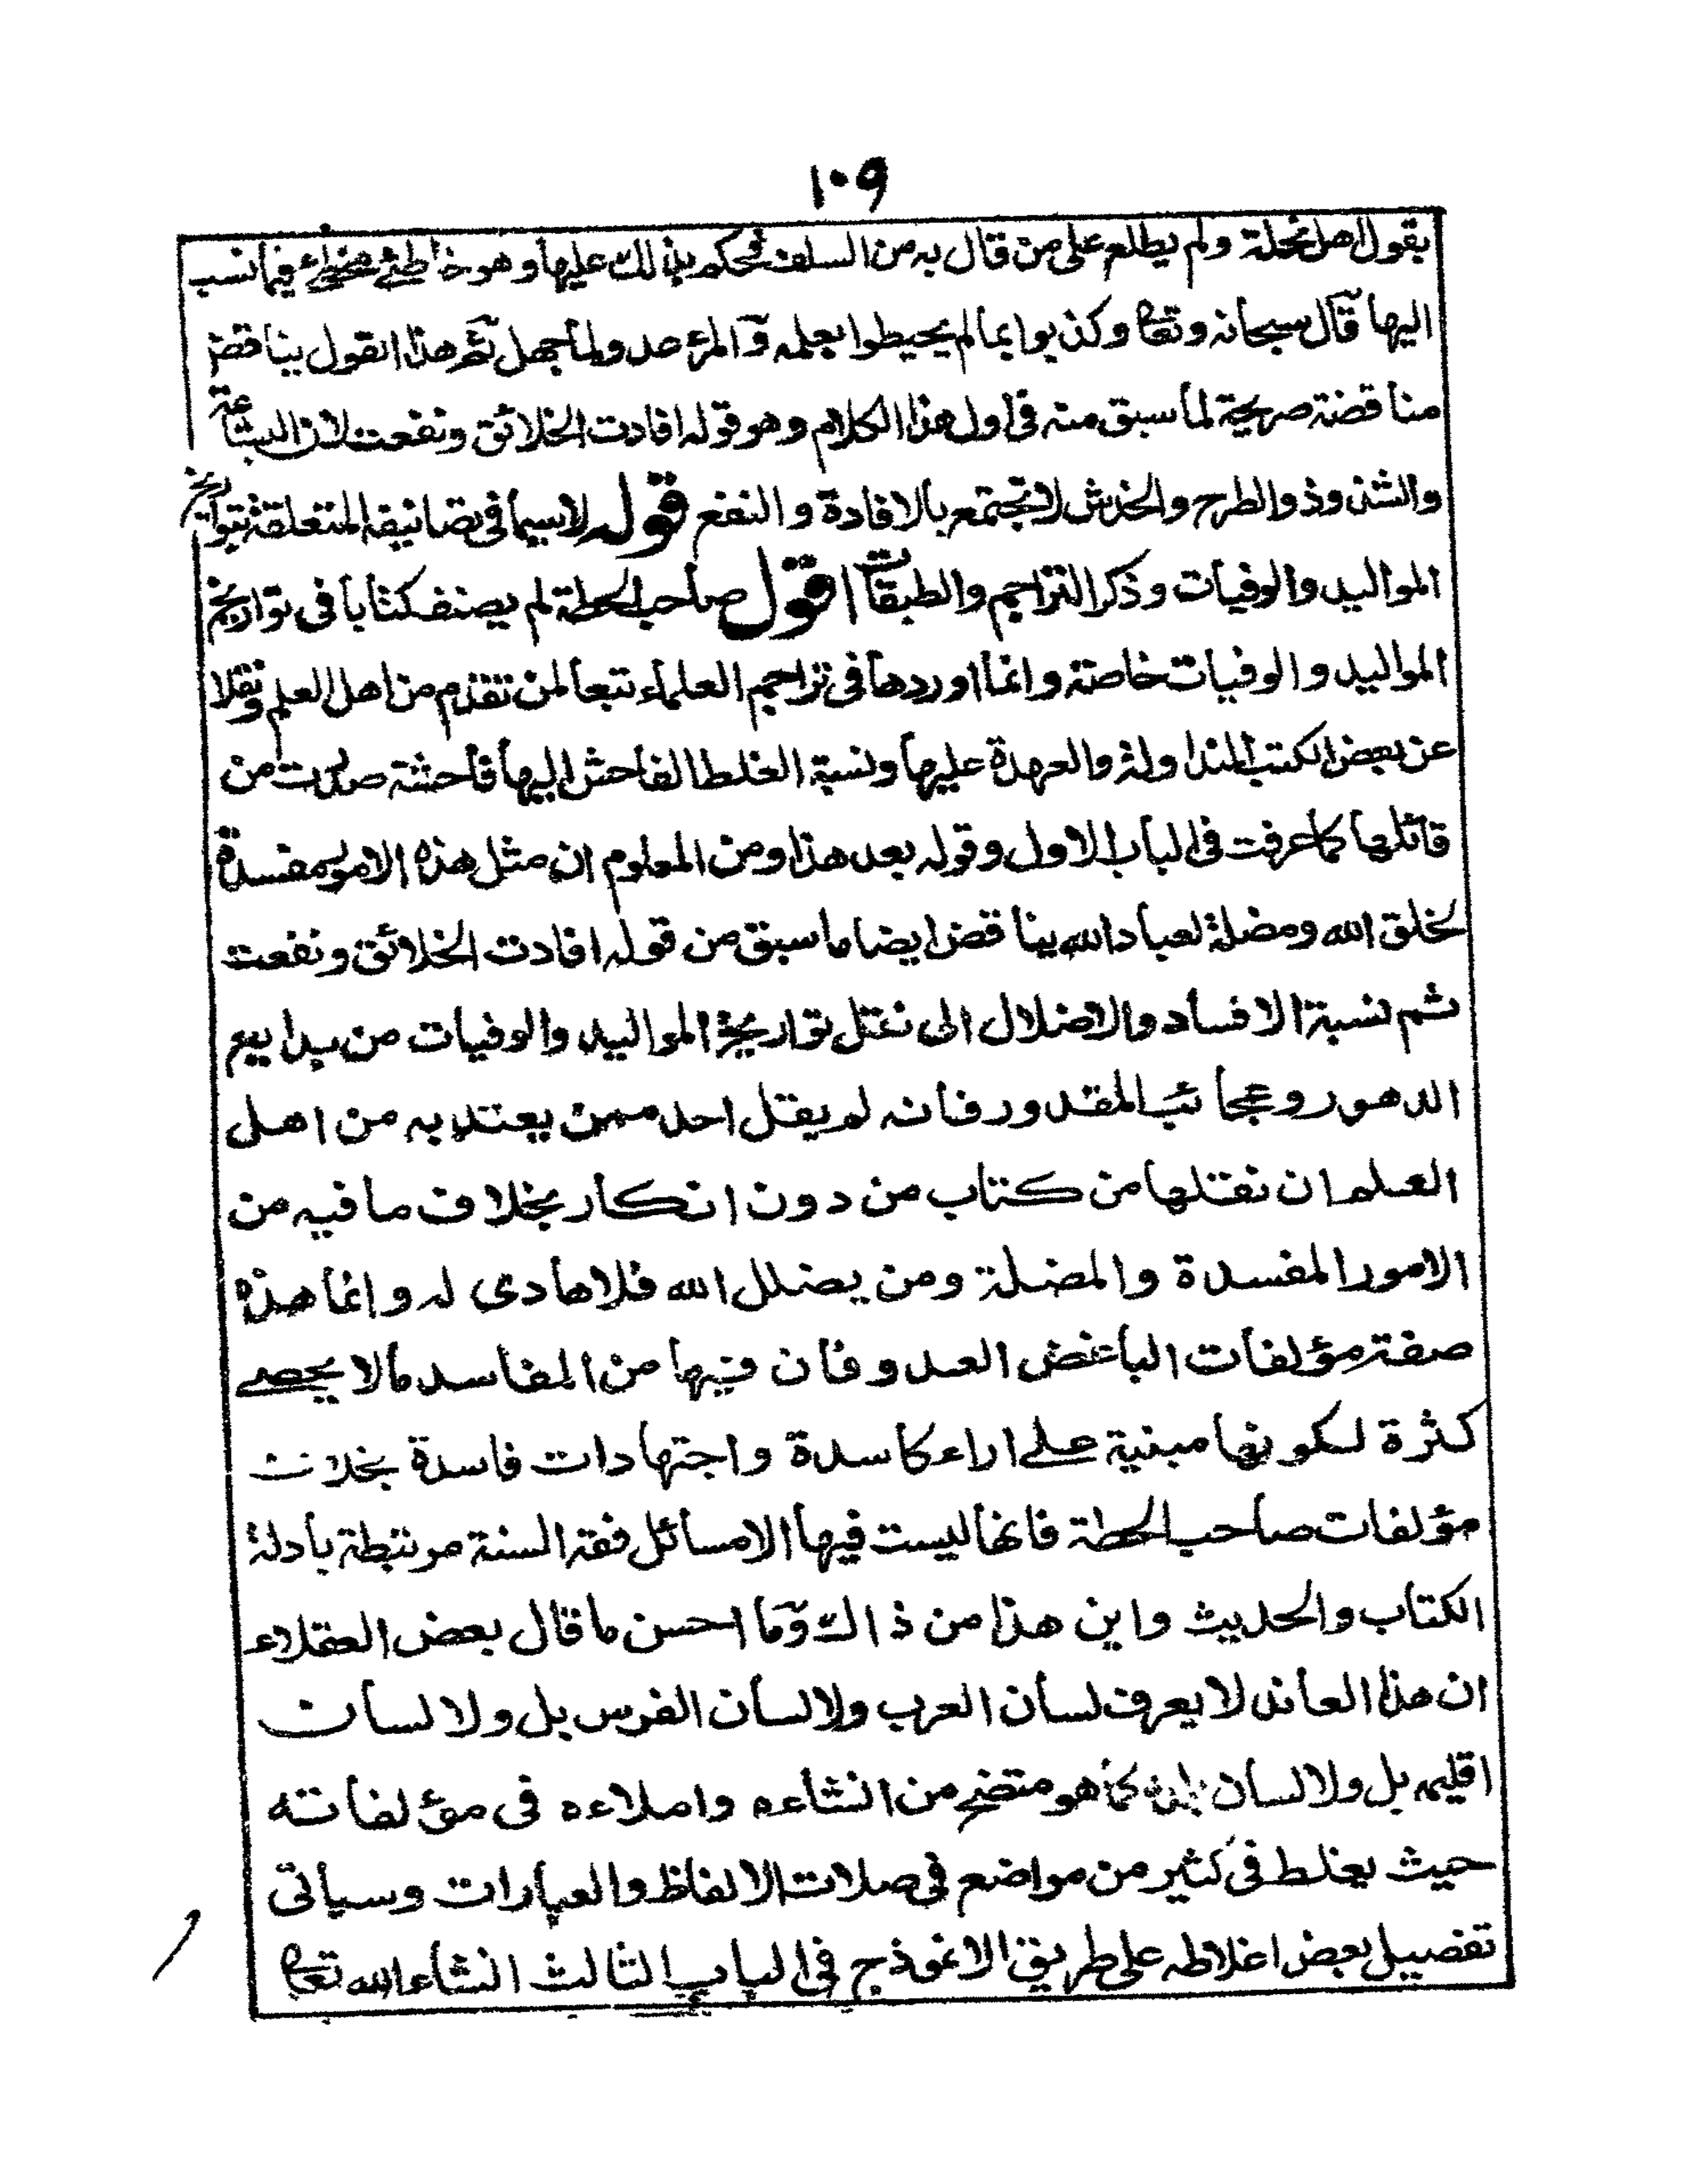 ١٠٩
بقول اهل نحلة ولم يطلع على من قال به من السلف فحكم بذلك عليها وهو خاطئ مخطئ فيما نسب
اليها قال سبحانه وتعا وكذبوا بما لم يحيطوا بعلمه والمرء عدو لما جهل ثم هذا القول يناقض
مناقضة صريحة لما سبق منه فى اول هذا الكلام وهو قوله افادت الخلائق ونفعت لان البشاعة
والشذوذ والطرح والخدش لا تجتمع بالافادة والنفع قوله لا سيما فى تصانيفه المتعلقة بتواريخ
المواليد والوفيات وذكر التراجم والطبقات اقول صاحب الحطة لم يصنف كتابا فى تواريخ
المواليد والوفيات خاصة وانما اوردها فى تراجم العلماء تبعا لمن تقدم من اهل العلم ونقلا
عن بعض الكتب المتداولة والعهدة عليها ونسبة الغلط الفاحش اليها فاحشة صدرت من
قائلها كما عرفت فى الباب الاول وقوله بعد هذا ومن المعلوم ان مثل هذه الامور مفسدة
لخلق الله ومضلة لعباد الله يناقض ايضا ما سبق من قوله افادت الخلائق ونفعت
ثم نسبة الافساد والاضلال الى نقل تواريخ المواليد والوفيات من بدايع
الدهور وعجائب المقدور فانه لم يقل احد ممن يعتد به من اهل
العلم ان نقلها من كتاب من دون انكار بخلاف ما فيه من
الامور المفسدة والمضلة ومن يضلل الله فلا هادى له وانما هذه
صفة مؤلفات الباغض العدو فان فيها من المفاسد مالا يحصے
كثرة لكونها مبنية علے اراء كاسدة واجتهادات فاسدة بخلاف
مؤلفات صاحب الحطة فانها ليست فيها الا مسائل فقه السنة مرتبطة بادلة
الكتاب والحديث واين هذا من ذاك وما احسن ما قال بعض العقلاء
ان هذا العاند لا يعرف لسان العرب ولا لسان الفرس بل ولا لسان
اقليمه بل ولا لسان بلده كما هو متضح من انشاءه واملاءه فى مؤلفاته
حيث يغلط فى كثير من مواضع فى صلات الالفاظ والعبارات وسياتى
تفصيل بعض اغلاطه على طريق الانموذج فى الباب الثالث انشاء الله تعا